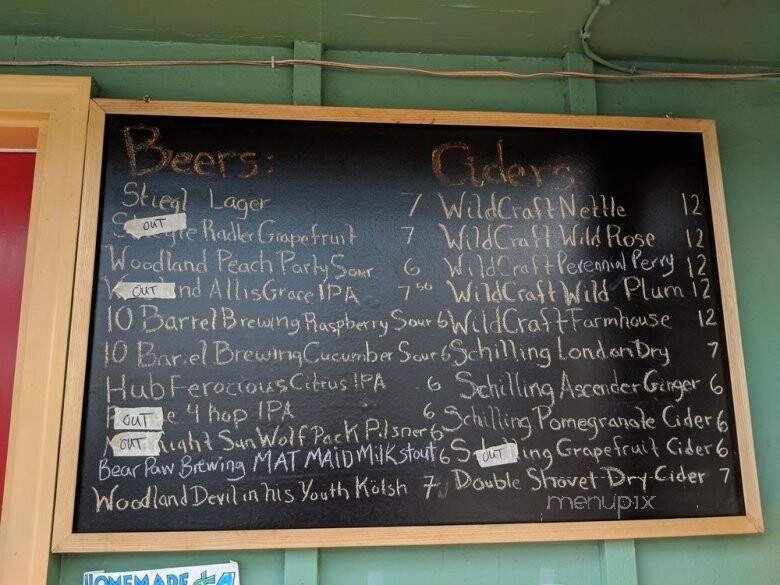 Beers:
Stiegl Lager 7
OUT Radler Grapefruit 7
Woodland Peach Party Sour 6
OUT nd AllisGrace IPA 7⁵⁰
10 Barrel Brewing Raspberry Sour 6
10 Barrel Brewing Cucumber Sour 6
Hub Ferocious Citrus IPA 6
OUT e 4 hop IPA 6
OUT night Sun Wolf Pack Pilsner 6
Bear Paw Brewing MAT MAID Milk stout 6
Woodland Devil in his Youth Kölsh 7
Ciders:
WildCraft Nettle 12
WildCraft Wild Rose 12
WildCraft Perennial Perry 12
WildCraft Wild Plum 12
WildCraft Farmhouse 12
Schilling London Dry 7
Schilling Ascender Ginger 6
Schilling Pomegranate Cider 6
S OUT ing Grapefruit Cider 6
Double Shovel Dry Cider 7
menupix
HOMEMADE